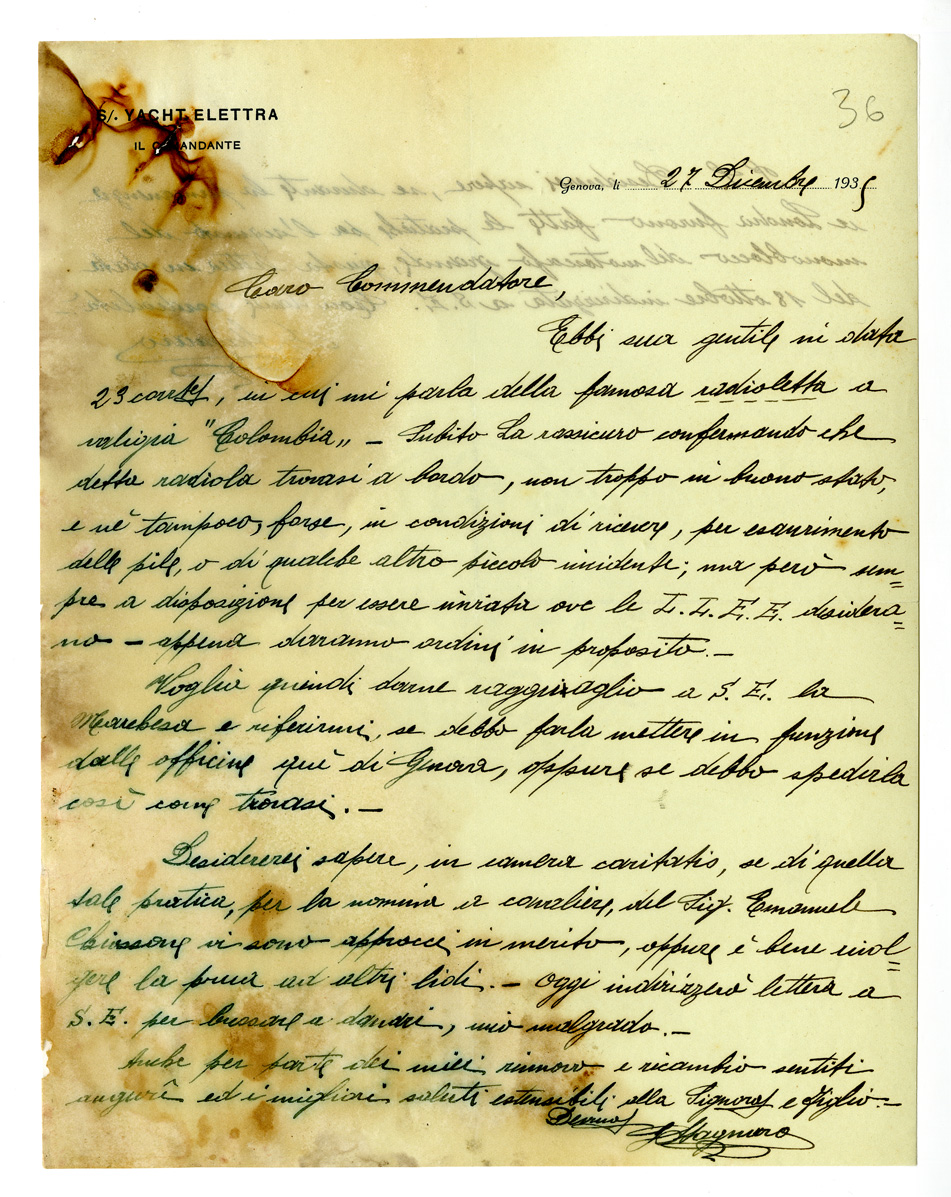 36
S/. YACHT ELETTRA
IL COMANDANTE
Genova, li 27 Dicembre 1935
Caro Commendatore,
Ebbi sua gentile in data
23 corrte, in cui mi parla della famosa radioletta a
valigia "Colombia„ – Subito La rassicuro confermando che
detta radiola trovasi a bordo, non troppo in buono stato,
e nè tampoco, forse, in condizioni di ricevere, per esaurimento
delle pile, o di qualche altro piccolo incidente; ma però sem=
pre a disposizione per essere inviata ove le L.L.E.E. desidera=
no – appena daranno ordini in proposito. –
Voglia quindi darne ragguaglio a S. E. la
Marchesa e riferirmi, se debbo farla mettere in funzione
dalle officine quì di Genova, oppure se debbo spedirla
così come trovasi. –
Desidererei sapere, in camera caritatis, se di quella
tale pratica, per la nomina a cavaliere, del Sig. Emanuele
vi sono approcci in merito, oppure è bene invol=
gere la prua ad altri lidi. – Oggi indirizzerò lettera a
S. E. per bussare a danari, mio malgrado. –
Anche per parte dei miei rinnovo e ricambio sentiti
augurî ed i migliori saluti estensibili alla Signora e figlio. –
Devmo
Stagnaro